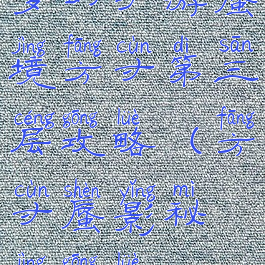 jìng fāng cùn dì sān
境 方 寸 第 三
céng gōng lüè fāng
层 攻 略 （ 方
cùn shèn yǐng mì
寸 蜃 影 秘
jìng gōng lüè